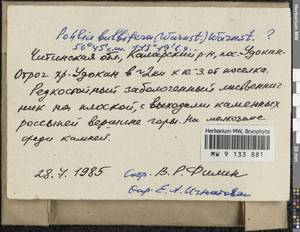 Pohlia bulbifera (Warnst.) Warnst. ?
56°45' с.ш. 118°19' в.д.
Читинская обл., Каларский р-н, пос. Удокан.
Отрог хр. Удокан в ~2 км к ю.з. от поселка.
Редкостойный заболоченный лиственнич-
ник на плоской, с выходами каменных
россыпей вершине горы. На мелкоземе
среди камней.
Herbarium MW, Bryophyta
MW 9 133 881
28.7.1985 Собр. В.Р. Филин
Опр. Е.А. Игнатова